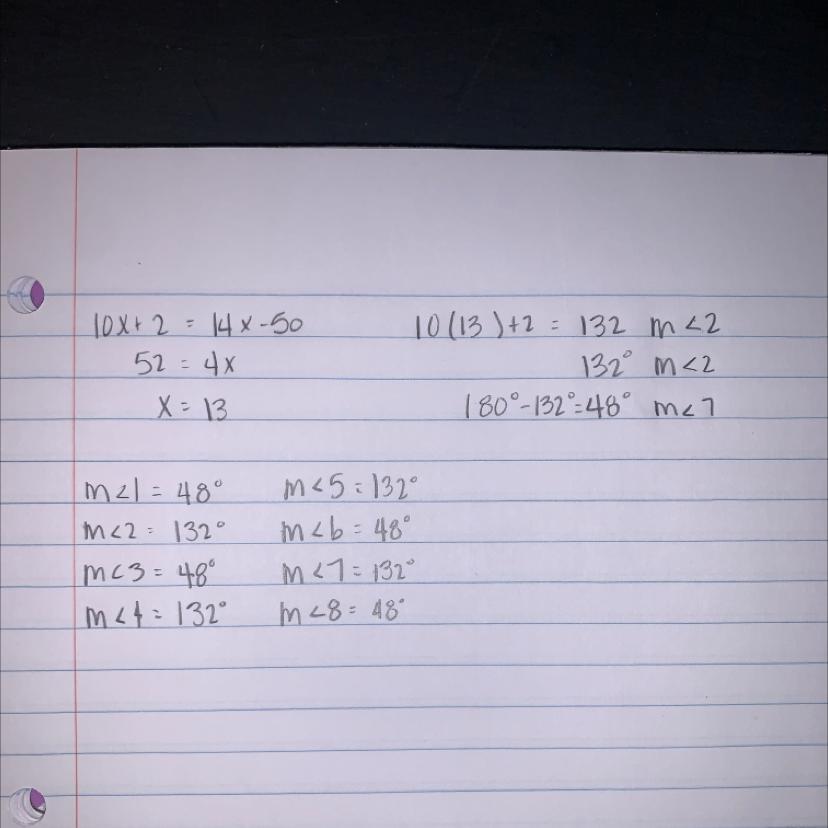 10x+2 = 14x-50
52 = 4x
x = 13
10(13)+2 = 132 m<2
132° m<2
180°-132°=48° m<7
m<1 = 48°
m<2 = 132°
m<3 = 48°
m<4 = 132°
m<5 = 132°
m<6 = 48°
m<7 = 132°
m<8 = 48°